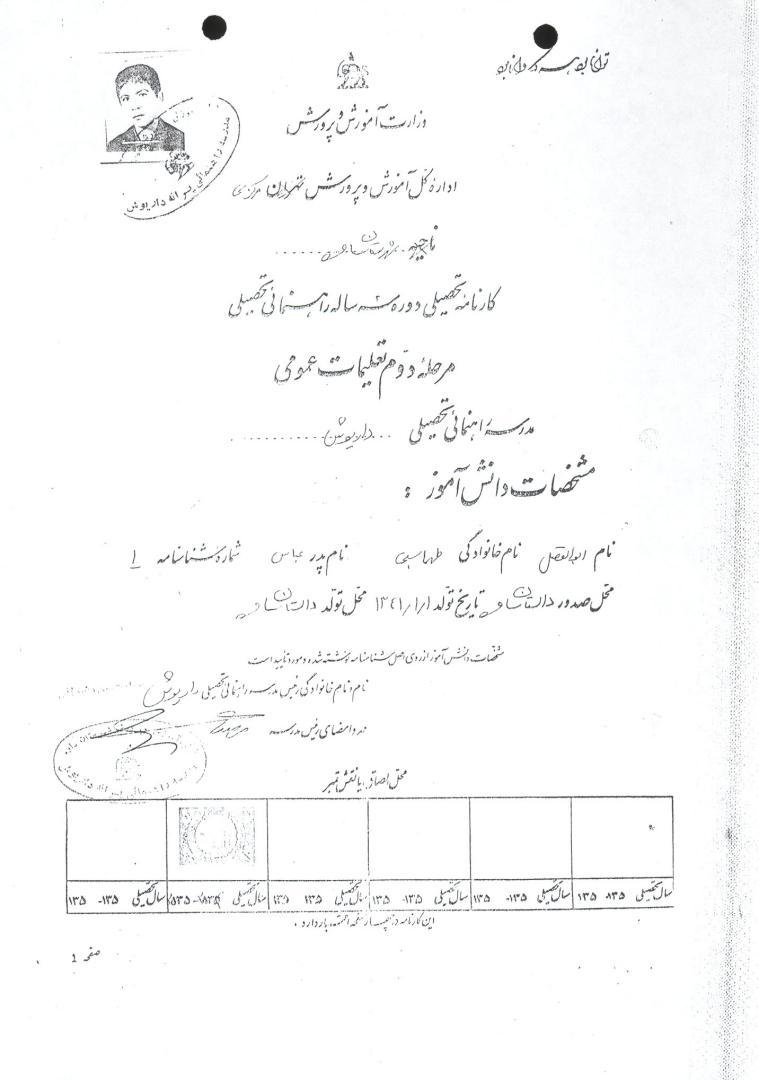 توانا بود هر که دانا بود
وزارت آموزش و پرورش
اداره کل آموزش و پرورش تهران مرکزی
مدرسه راهنمائی پسرانه داریوش
ناحیه شهرستان ساوه
کارنامه تحصیلی دوره سه ساله راهنمائی تحصیلی
مرحله دوم تعلیمات عمومی
مدرسه راهنمائی تحصیلی داریوش
مشخصات دانش آموز :
نام ابوالفضل نام خانوادگی طهماسبی نام پدر عباس شماره شناسنامه ۱
محل صدور ساوه تاریخ تولد ۱۳۴۱/۱/۱ محل تولد ساوه
مشخصات دانش آموز از روی اصل شناسنامه نوشته شده و مورد تأیید است
نام و نام خانوادگی رئیس مدرسه راهنمائی تحصیلی داریوش
مهر و امضای رئیس مدرسه
محل الصاق یا نقش تمبر
سال تحصیلی ۱۳۵ ۱۳۵ سال تحصیلی ۱۳۵ ۱۳۵ سال تحصیلی ۱۳۵ ۱۳۵ سال تحصیلی ۱۳۵ ۱۳۵ سال تحصیلی سال تحصیلی ۱۳۵ ۱۳۵
این کارنامه در چهار صفحه اعتبار دارد .
صفحه 1